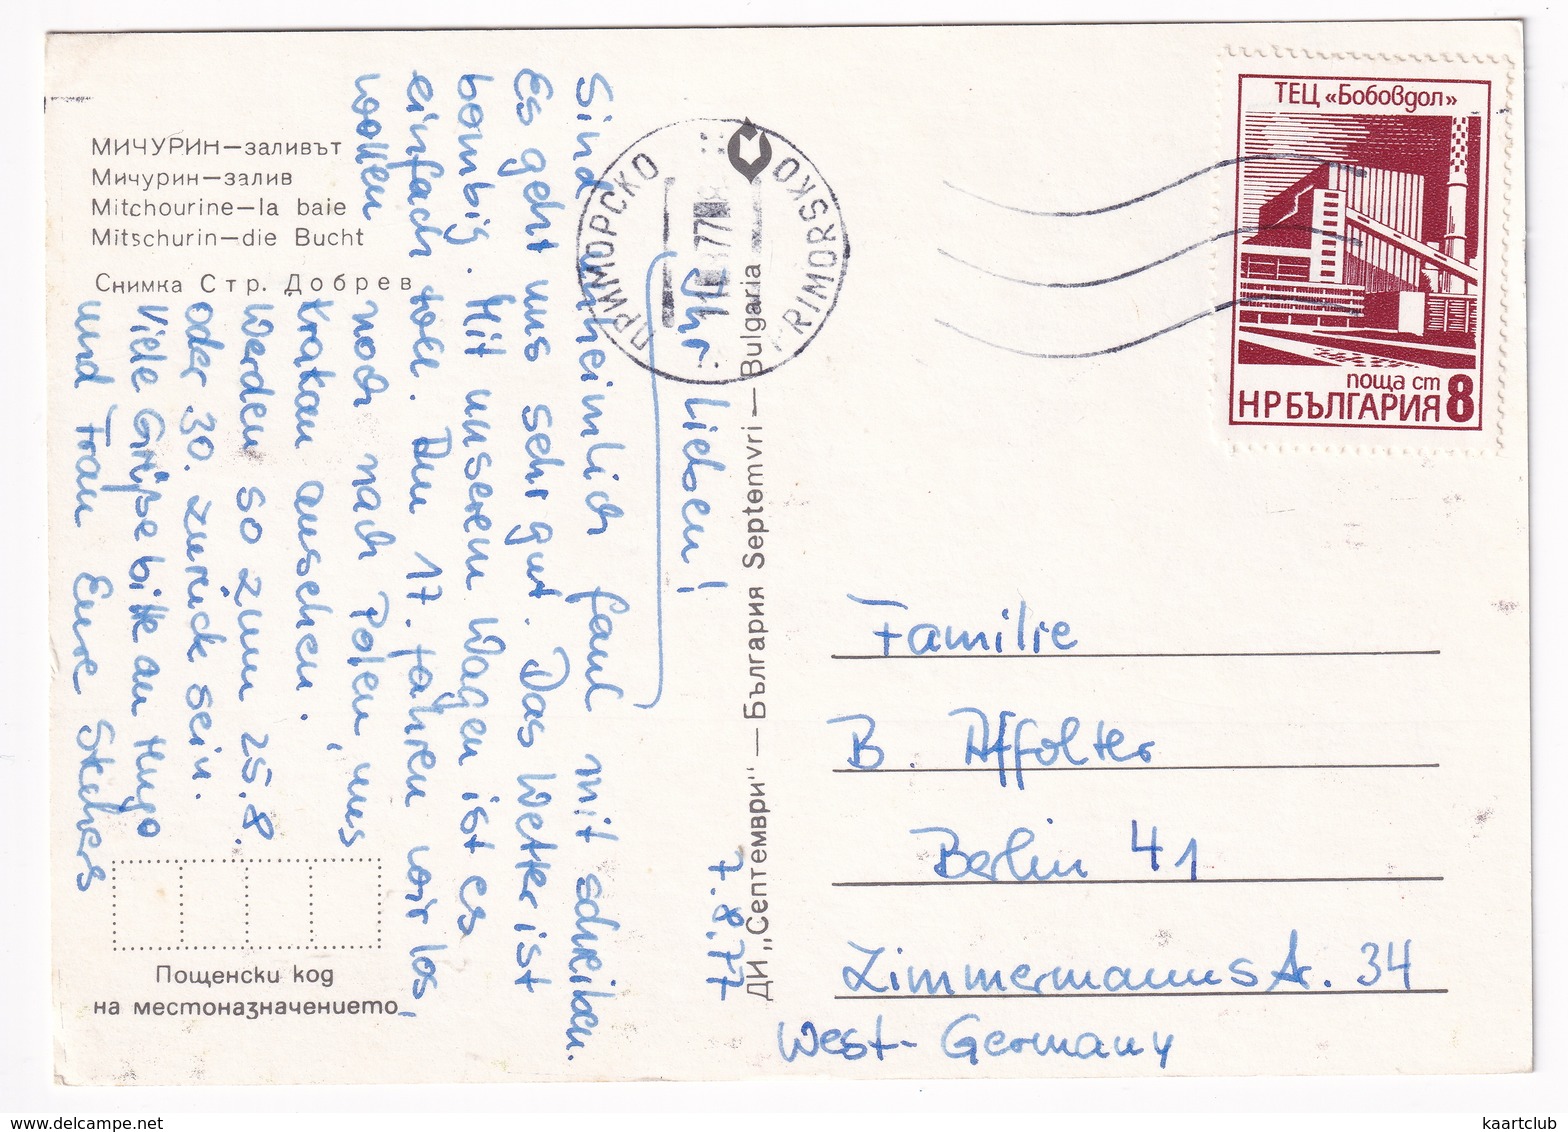 МИЧУРИН—заливът
Мичурин—залив
Mitchourine—la baie
Mitschurin—die Bucht
Снимка Стр. Добрев
7.8.77
Ihr Lieben!
Sind unheimlich faul mit schreiben.
Es geht uns sehr gut. Das Wetter ist
bombig. Mit unserem Wagen ist es
einfach toll. Am 17. fahren wir los,
wollen noch nach Polen, uns
Krakau ansehen.
Werden so zum 25.8.
oder 30. zurück sein.
Viele Grüße bitte an Hugo
und Frau Eure
Пощенски код
на местоназначението
ДИ „Септември" — България Septemvri — Bulgaria
ПРИМОРСКО
PRIMORSKO
77
ТЕЦ «Бобовдол»
поща ст
НРБЪЛГАРИЯ 8
Familie
B. Affolter
Berlin 41
Zimmermannstr. 34
West-Germany
kaartclub